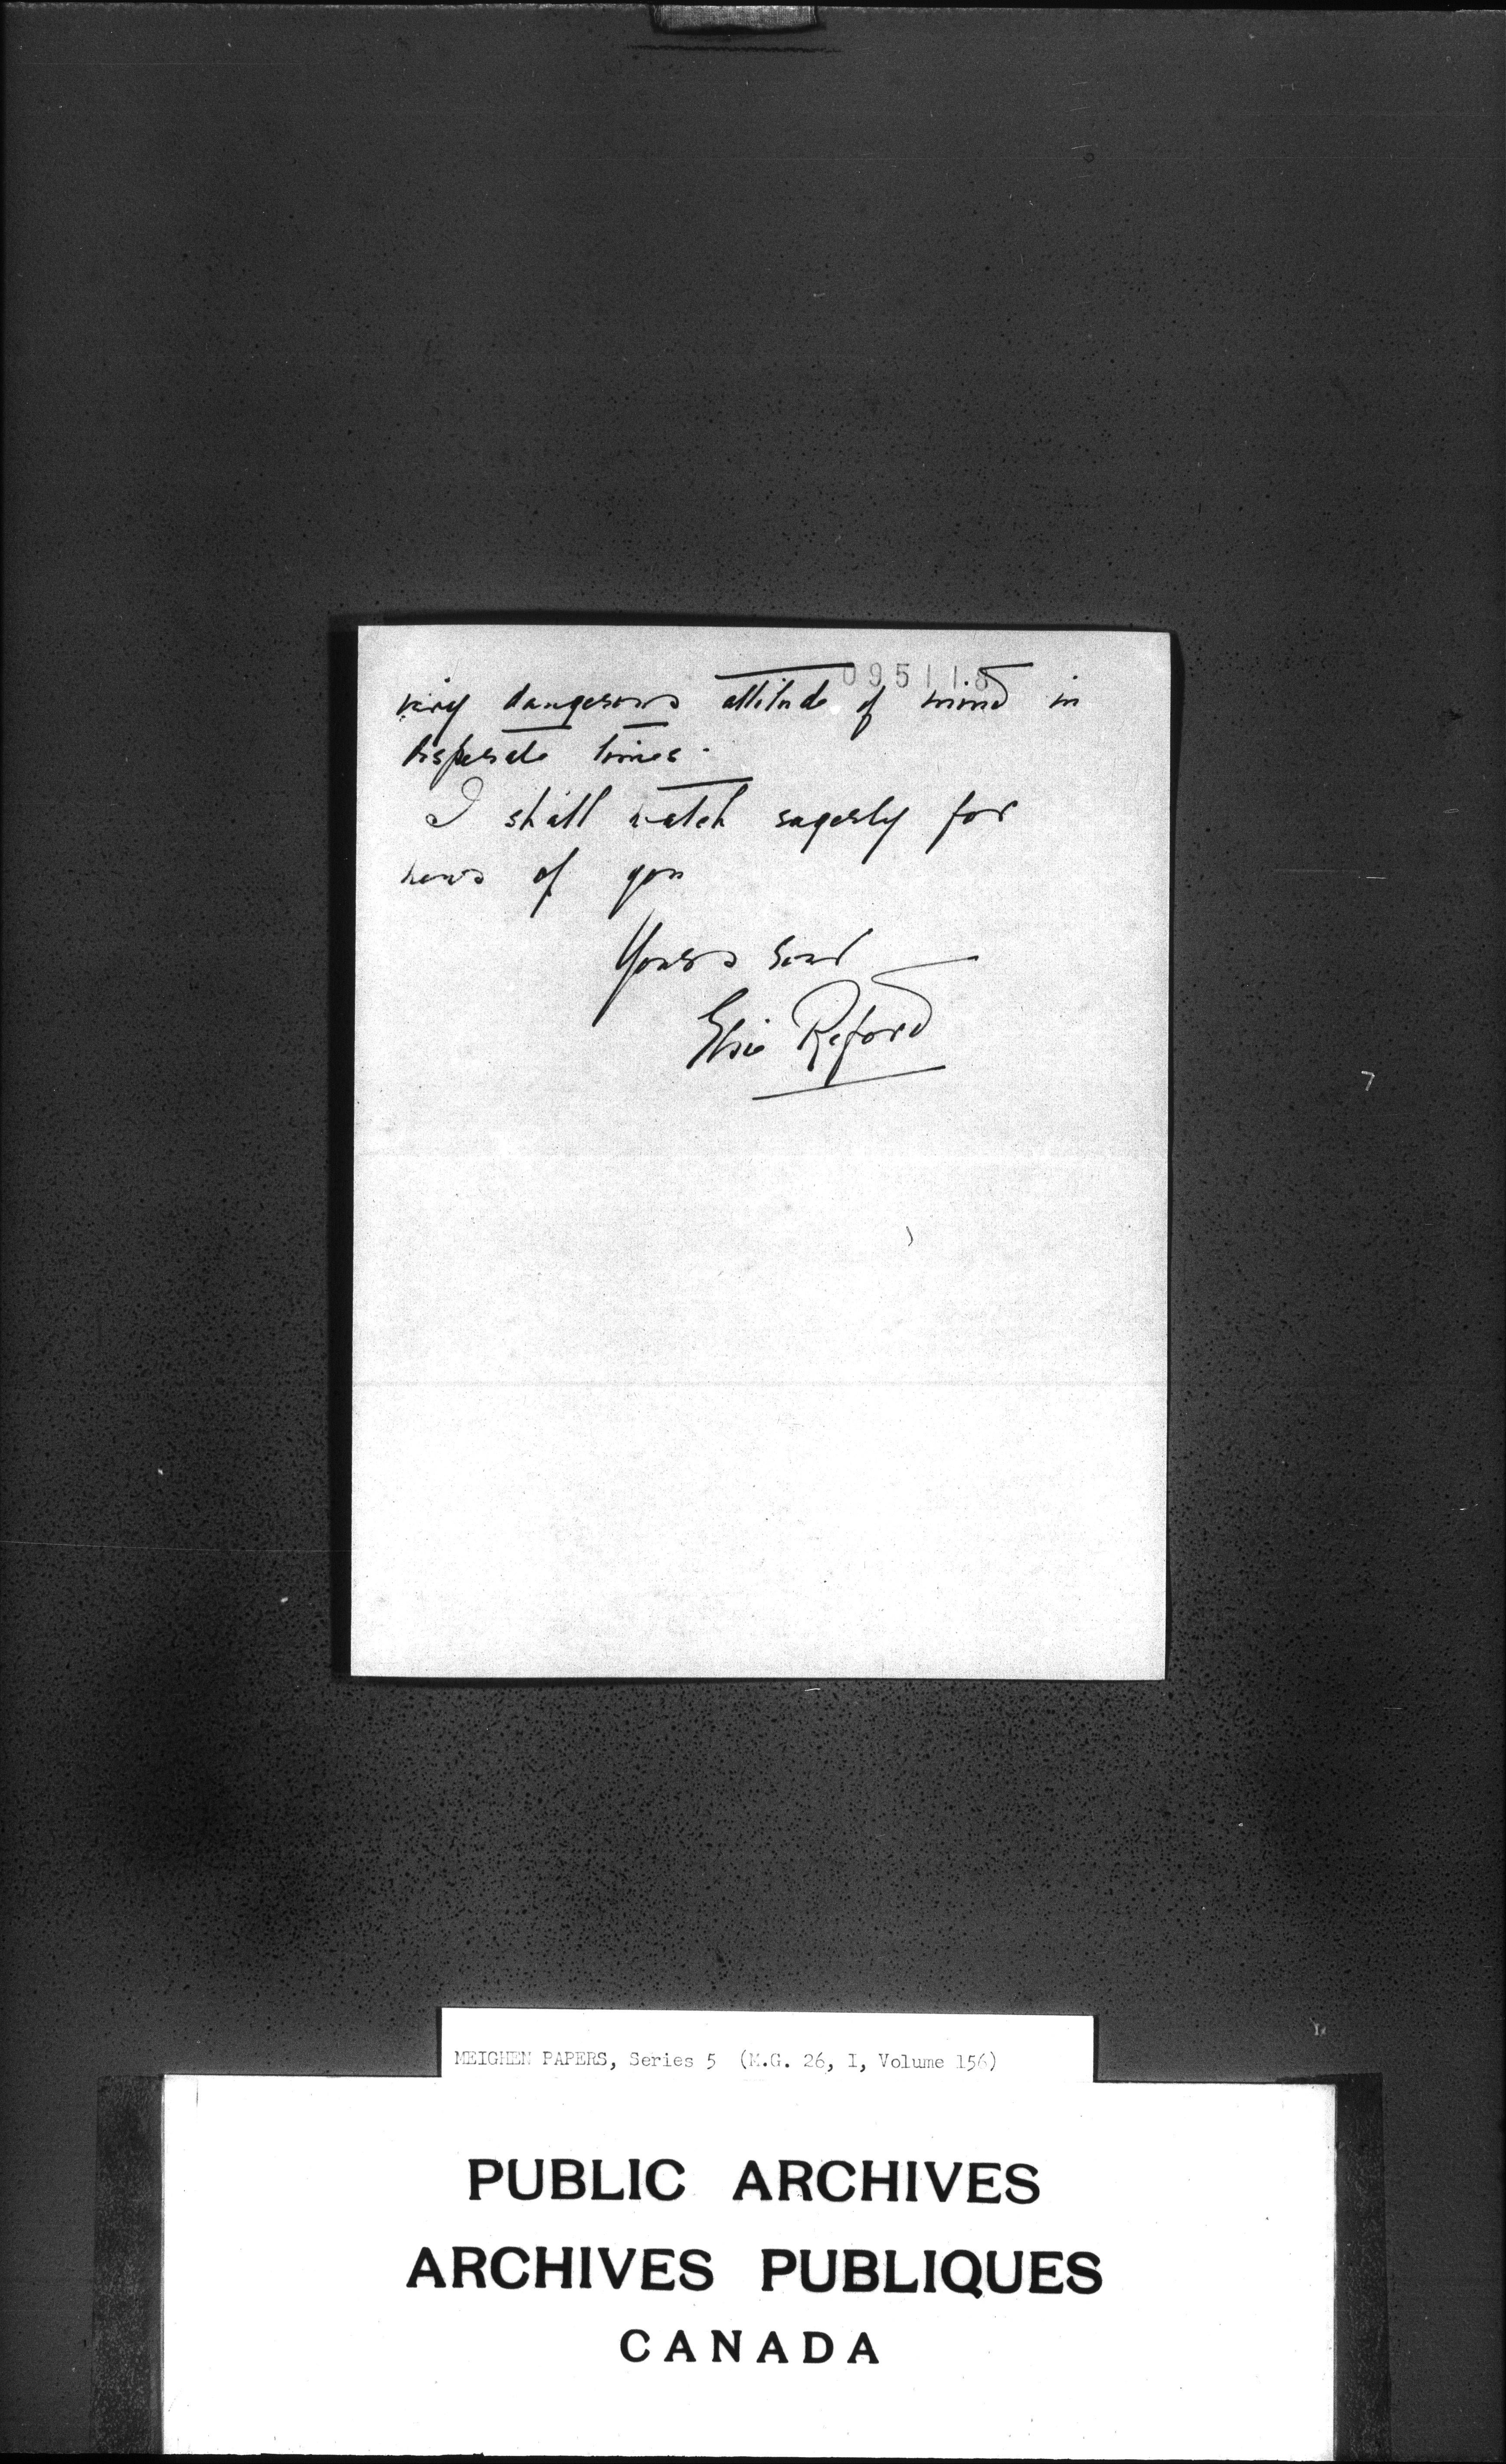 095118
very dangerous attitude of mind in
desperate times.
I shall watch eagerly for
news of you
Yours
Elsie Reford
MEIGHEN PAPERS, Series 5 (M.G. 26, I, Volume 156)
PUBLIC ARCHIVES
ARCHIVES PUBLIQUES
CANADA